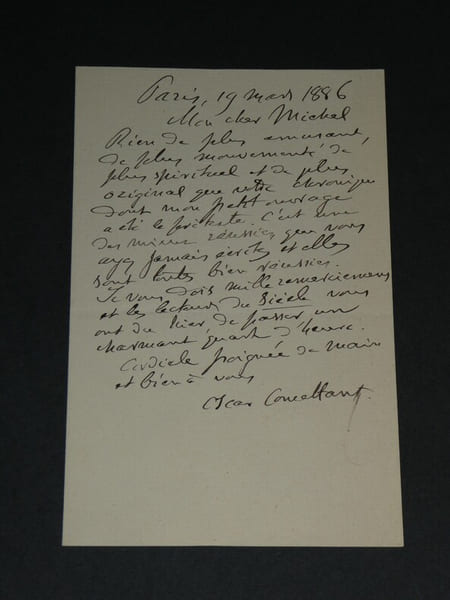 Paris, 19 mars 1886
Mon cher Michel
Rien de plus amusant,
de plus mouvementé de
plus spirituel et de plus
original que votre chronique
dont mon petit ouvrage
a été le prétexte. C'est une
des mieux réussies que vous
ayez jamais écrites et elles
sont toutes bien réussies.
Je vous dois mille remerciemens
et les lecteurs du Siècle vous
ont du hier, de passer un
charmant quart d'heure.
Cordiale poignée de main
et bien à vous
Oscar Comettant